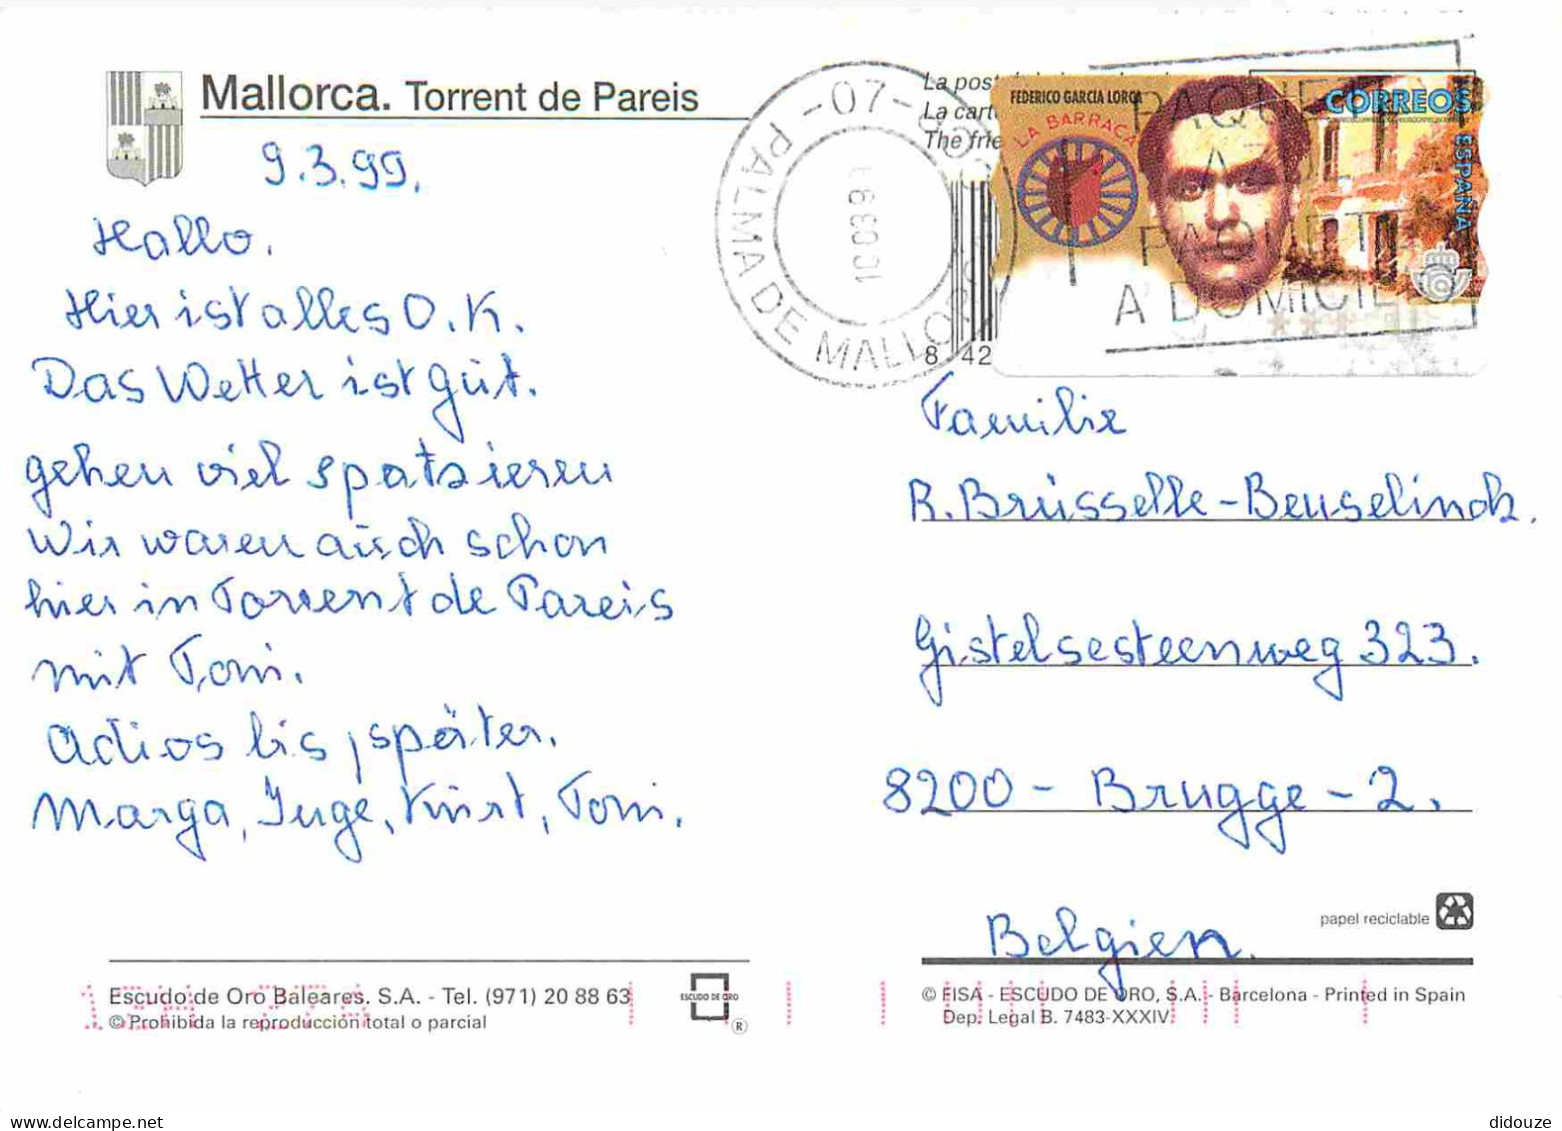 Mallorca. Torrent de Pareis
9.3.99.
Hallo.
Hier ist alles O.K.
Das Wetter ist gut.
gehen viel spatzieren
Wir waren auch schon
hier in Torrent de Pareis
mit Toni.
Adios bis, später.
Marga, Inge, Kurt, Toni.
Escudo de Oro Baleares. S.A. - Tel. (971) 20 88 63
© Prohibida la reproducción total o parcial
ESCUDO DE ORO
®
-07-
PALMA DE MALLORCA
La pos
La cart
The frie
8 42
FEDERICO GARCIA LORCA
LA BARRACA
CORREOS
ESPAÑA
PAQUETE
A
PAQUET
A DOMICILIO
Familie
R. Brüsselle-Beuselinck.
Gistelsesteenweg 323.
8200 - Brugge - 2.
Belgien.
papel reciclable
© FISA - ESCUDO DE ORO, S.A. - Barcelona - Printed in Spain
Dep. Legal B. 7483-XXXIV
didouze